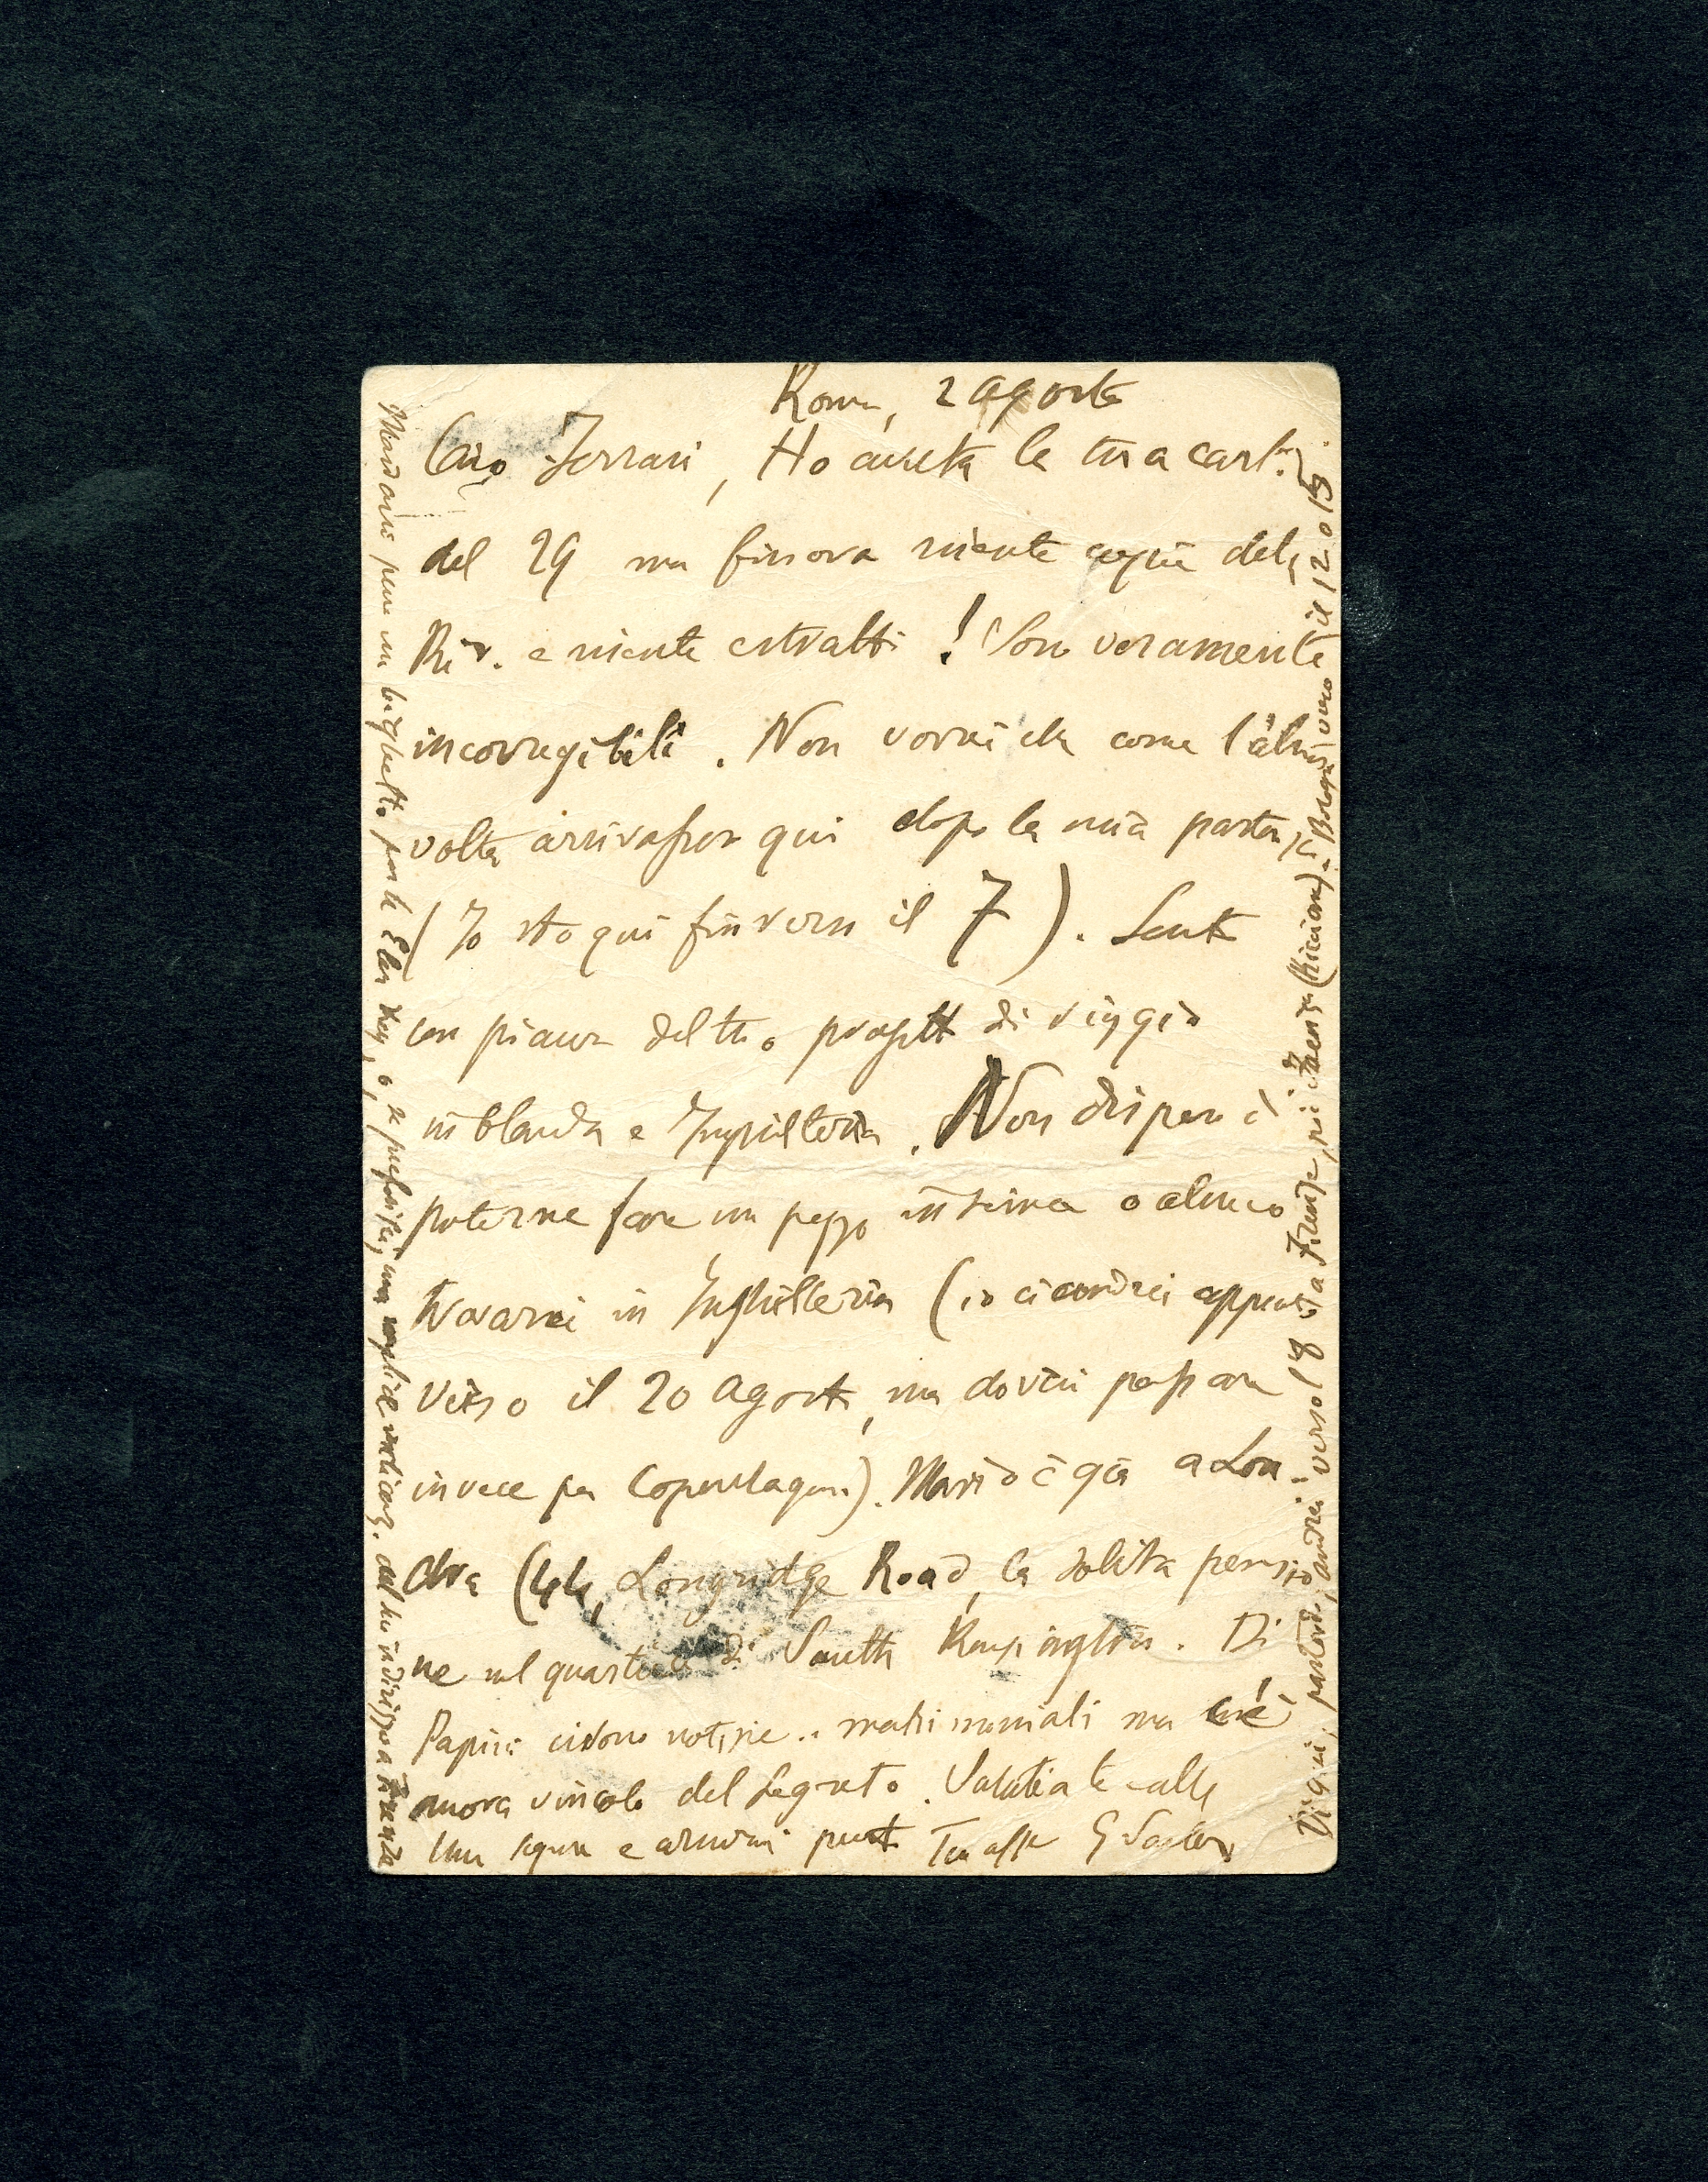 Roma, 2 agosto
Caro Ferrari, Ho avuta la tua cart.
del 29 ma finora niente copie della
Riv. e niente estratti! Sono veramente
incorregibili. Non vorrei che come l'altra
volta arrivassero qui dopo la mia partenza
(Io sto qui fin verso il 7). Sento
con piacere del tuo progetto di viaggio
in Olanda e Inghilterra. Non dispero di
poterne fare un pezzo insieme o almeno
trovarci in Inghilterra (io ci andrei appena
verso il 20 agosto, ma dovrei passare
invece per Copenhagen). Mario è già a Lon-
dra (44, Longridge Road, la solita pensio-
ne nel quartiere di South Kensington. Di
Papini ci sono notizie.. matrimoniali ma c'è
ancora vincolo del segreto. Saluti a te e alla
tua signora e presto Tuo aff G Vailati
Mandami pure un biglietto per la Ellen Key, o, se preferissi, una semplice indicaz. del suo indirizzo a Firenze
Di qui, partendo, andrei verso l'8 a Firenze, poi (Ricciani). Bologna verso il 12 o 13